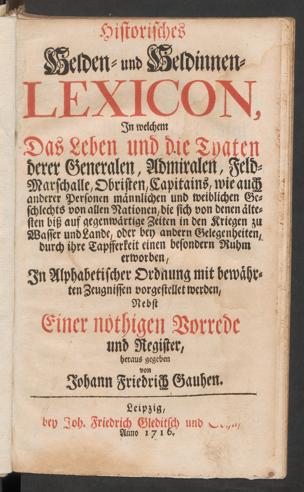 Historisches
Helden- und Heldinnen-
LEXICON,
In welchem
Das Leben und die Thaten
derer Generalen, Admiralen, Feld-
Marschalle, Obristen, Capitains, wie auch
anderer Personen männlichen und weiblichen Ge-
schlechts von allen Nationen, die sich von denen älte-
sten biß auf gegenwärtige Zeiten in den Kriegen zu
Wasser und Lande, oder bey andern Gelegenheiten,
durch ihre Tapfferkeit einen besondern Ruhm
erworben,
In Alphabetischer Ordnung mit bewähr-
ten Zeugnissen vorgestellet werden,
Nebst
Einer nöthigen Vorrede
und Register,
heraus gegeben
von
Johann Friedrich Gauhen.
Leipzig,
bey Joh. Friedrich Gleditsch und
Anno 1716.